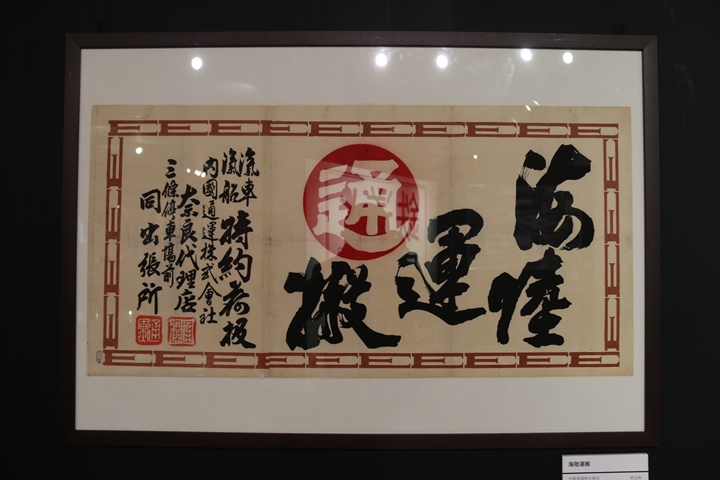 海陸
運搬
通
汽車
滊船
特約荷扱
内國通運株式會社
大奈良代理店
三條停車場前
同出張所
海陸運搬